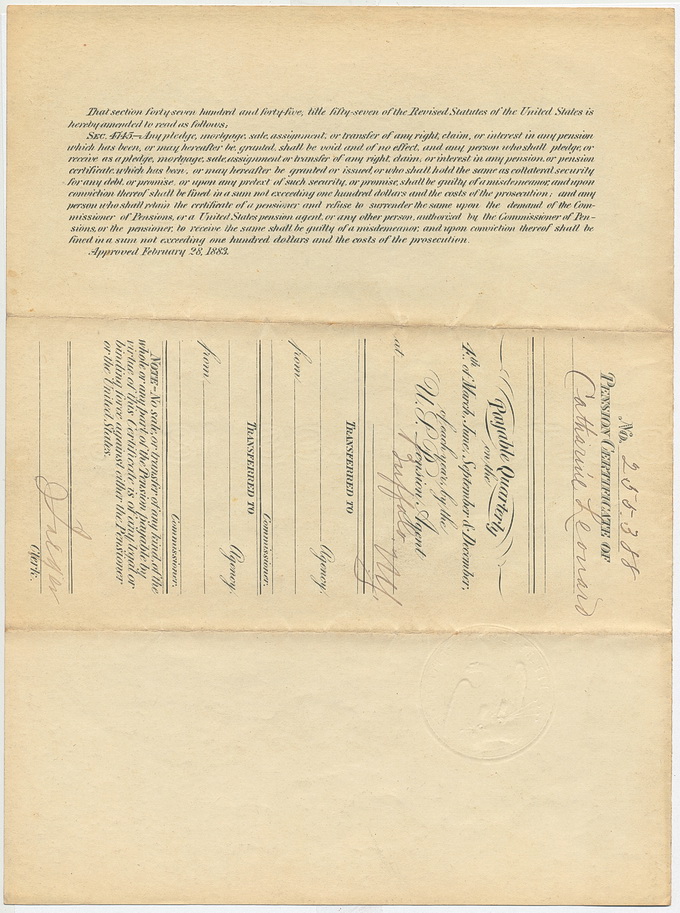 That section forty-seven hundred and forty-five, title fifty-seven of the Revised Statutes of the United States is
hereby amended to read as follows;
SEC. 4745—Any pledge, mortgage, sale, assignment, or transfer of any right, claim, or interest in any pension
which has been, or may hereafter be, granted, shall be void and of no effect, and any person who shall pledge, or
receive as a pledge, mortgage, sale, assignment or transfer of any right, claim, or interest in any pension, or pension
certificate, which has been, or may hereafter be granted or issued, or who shall hold the same as collateral security
for any debt, or promise, or upon any pretext of such security, or promise, shall be guilty of a misdemeanor, and upon
conviction thereof shall be fined in a sum not exceeding one hundred dollars and the costs of the prosecution; and any
person who shall retain the certificate of a pensioner and refuse to surrender the same upon the demand of the Com-
missioner of Pensions, or a United States pension agent, or any other person, authorized by the Commissioner of Pen-
sions, or the pensioner, to receive the same shall be guilty of a misdemeanor, and upon conviction thereof shall be
fined in a sum not exceeding one hundred dollars and the costs of the prosecution.
Approved February 28, 1883.
No. 255.388
PENSION CERTIFICATE OF
Catharine Leonard
Payable Quarterly
on the
4th of March, June, September & December,
of each year, by the
U.S. Pension Agent
at Buffalo, N.Y.
TRANSFERRED TO
Agency,
from
Commissioner.
TRANSFERRED TO
Agency,
from
Commissioner.
NOTE—No sale, or transfer of any kind, of the
whole or any part of the Pension payable by
virtue of this Certificate is of any legal or
binding force against either the Pensioner
or the United States.
Clerk.